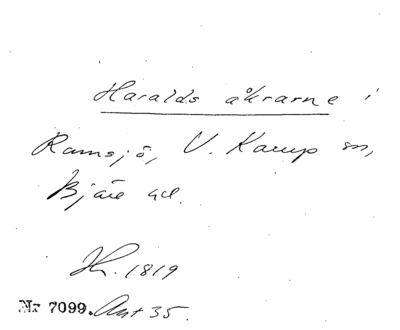 Haralds åkrarne i
Ramsjö, V. Karup sn,
Bjäre hd.
Hr. 1819
Nr 7099. Ant 35.